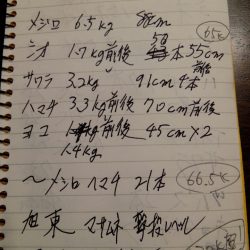 メジロ 6.5kg 88cm
65k
シオ 1.7kg前後 58本 55cm前後
サワラ 3.2kg 91cm 4本
ハマチ 3.3kg前後 70cm前後
ヨコ kg前後 45cm×2
1.4kg
〜メジロ ハマチ 21本 66.5k
旭東 マサムネ